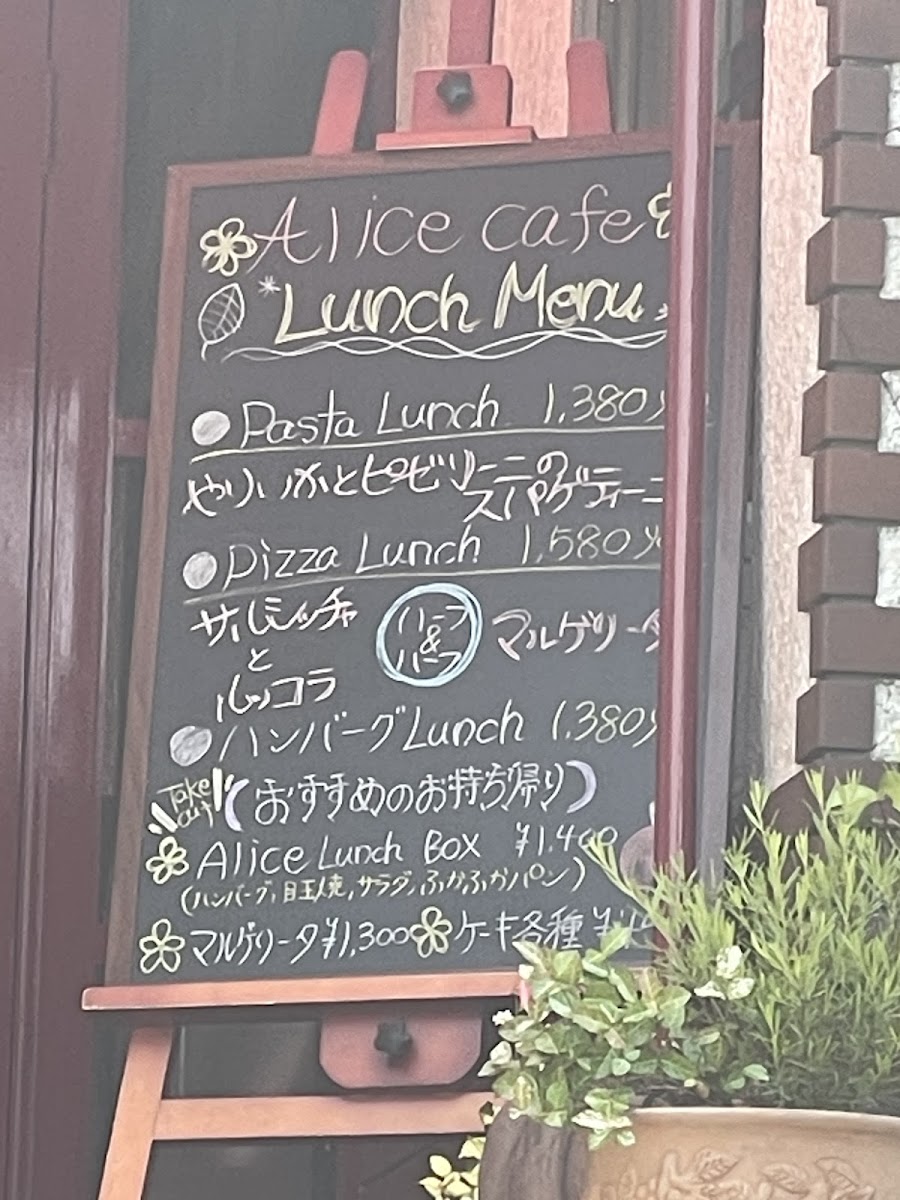 Alice cafe
Lunch Menu
Pasta Lunch 1,380
やりいかとピゼリーニの
スパゲティーニ
Pizza Lunch 1,580
サルシッチャ
と
ルッコラ
ハーフ
&
ハーフ
マルゲリータ
ハンバーグLunch 1,380
Take out
(おすすめのお持ち帰り)
Alice Lunch Box ¥1,400
(ハンバーグ,目玉焼,サラダ,ふかふかパン)
マルゲリータ¥1,300 ケーキ各種